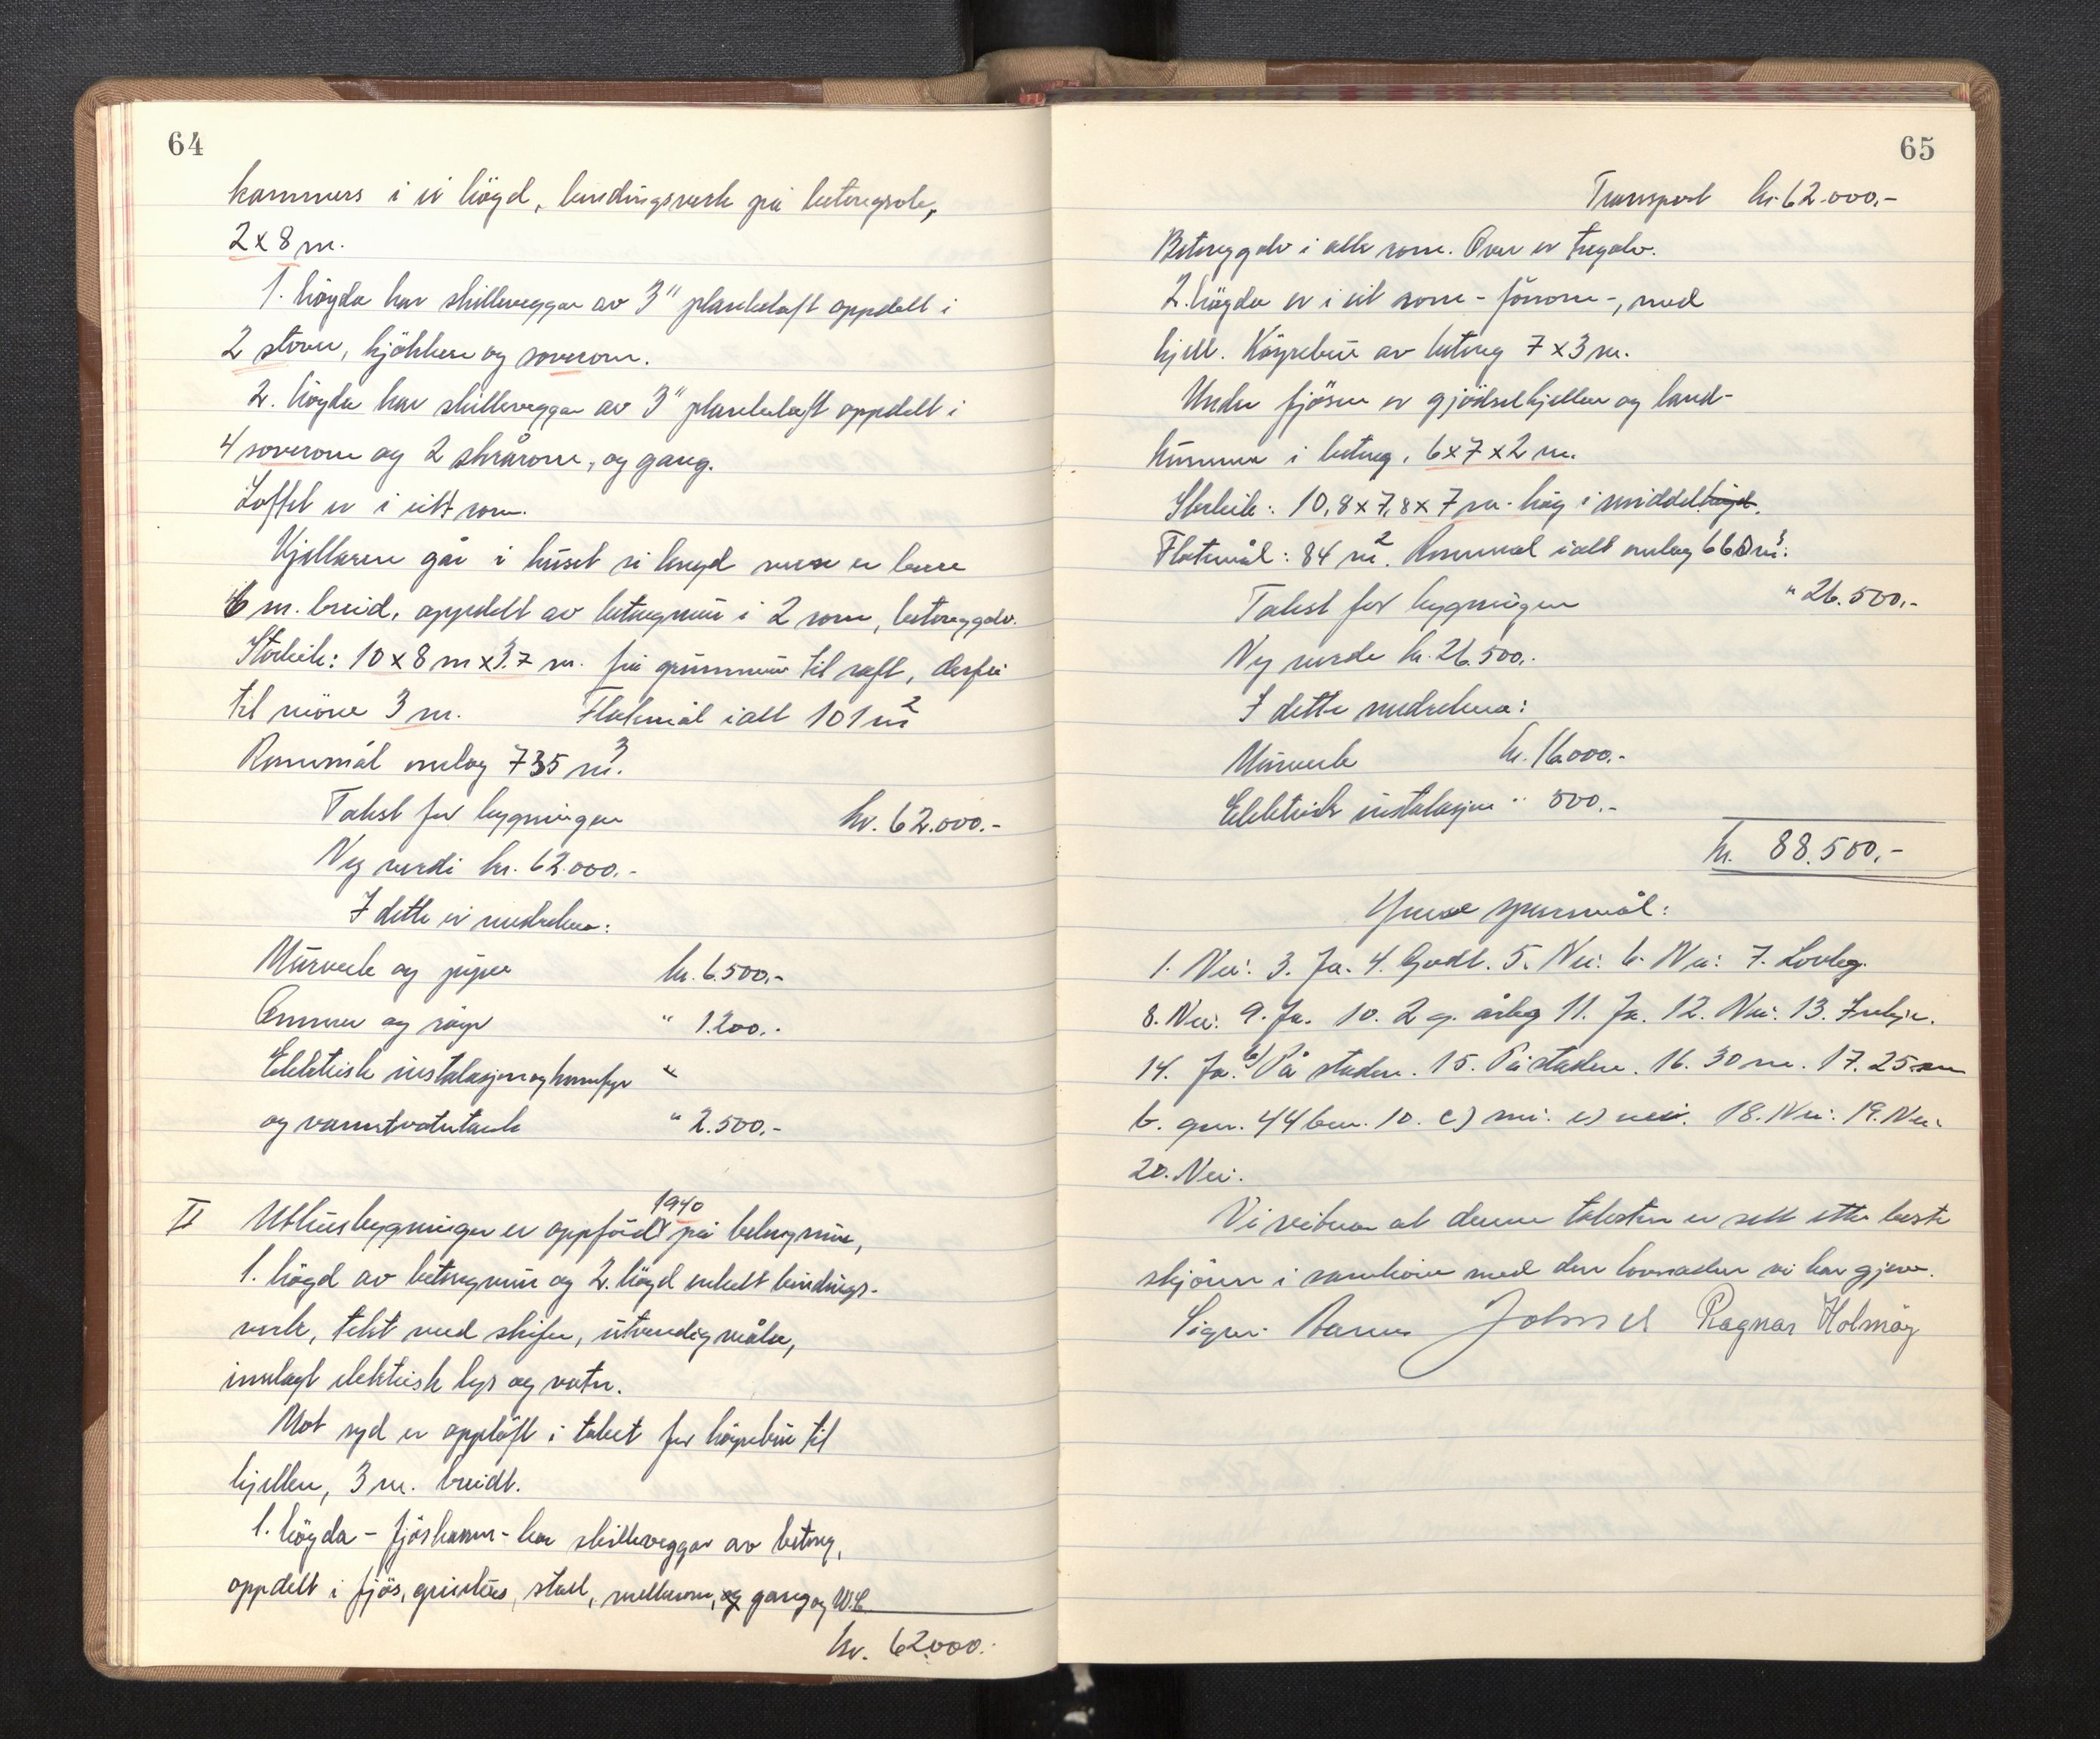 64
kammers i ei högd, bindingsverk på betongsole,
2 x 8 m.
1. högda har skilleveggar av 3" planketaft oppdelt i
2 stover, kjökken og soverom.
2. högda har skilleveggar av 3" planketaft oppdelt i
4 soverom og 2 skrårom, og gang.
Loftet er i eitt rom.
Kjellaren går i huset si lengd men er bare
6 m. breid, oppdelt av betongmur i 2 rom, betonggolv.
Storleik: 10 x 8 m x 3.7 m. frå grunnmur til raft, derfrå
til möne 3 m. Flatemål ialt 101 m²
Rommål omlag 735 m³.
Takst for bygningen kr. 62.000.-
Ny verdi kr. 62.000.-
I dette er medrekna:
Murverk og piper kr. 6.500.-
Omnar og rør " 1.200.-
Elektrisk instalasjon og komfyr "
og varmtvatntank " 2.500.-
II Uthusbygningen er oppförd 1940 på betongmur,
1. högd av betongmur og 2. högd enkelt bindings-
verk, tekt med skifer, utvendig måla,
innlagt elektrisk lys og vatn.
Mot syd er opplöft i taket for köyrebru til
hjellen, 3 m. breidt.
1. högda - fjöshamn - har skilleveggar av betong,
oppdelt i fjös, grisehus, stall, mellarom, og gang og W.C.
kr. 62000.-
65
Transport kr. 62.000.-
Betonggolv i alle rom. Over er tregolv.
2. högda er i eit rom - fôrrom -, med
hjell. Köyrebru av betong 7 x 3 m.
Under fjösen er gjödselkjellar og land-
kummer i betong, 6 x 7 x 2 m.
Storleik: 10,8 x 7,8 x 7 m. høg i middelhögd.
Flatemål: 84 m². Rommål ialt omlag 660 m³.
Takst for bygningen " 26.500.-
Ny verde kr. 26.500.-
I dette medrekna:
Murverk kr. 16000.-
Elektrisk instalasjon " 500.-
kr. 88.500.-
Ymse spursmål:
1. Nei. 3. Ja. 4. Godt. 5. Nei. 6. Nei. 7. Lovleg.
8. Nei. 9. Ja. 10. 2 g. årleg 11. Ja. 12. Nei. 13. Innkje.
14. Ja. b) På staden. 15. På staden. 16. 30 m. 17. 25 m
b. gnr. 44 bnr. 10. c) nei. e) nei. 18. Nei. 19. Nei.
20. Nei.
Vi vitnar at denne taksten er sett etter beste
skjönn i samhöve med den lovnaden vi har gjeve.
Ragnar Holmöy